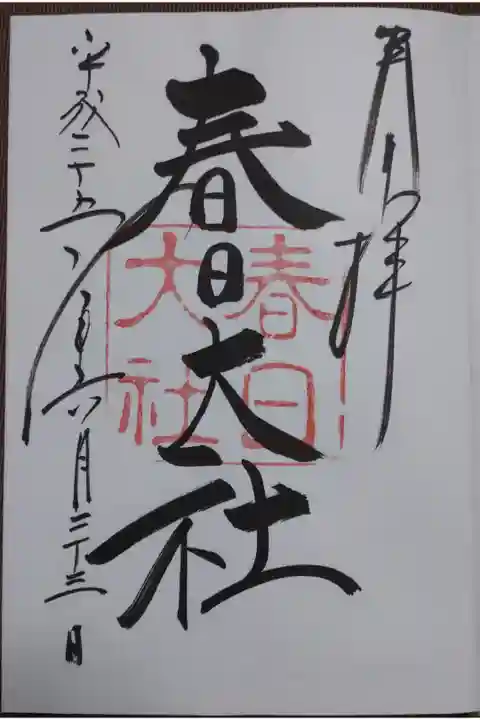 奉拝
春日大社
春日
大社
平成二十五年六月二十三日